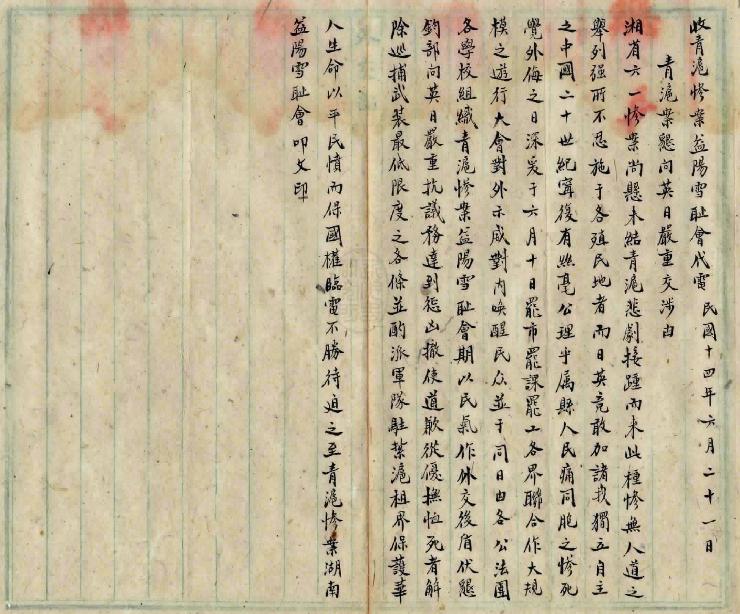 收青滬慘案益陽雪耻會代電 民國十四年六月二十一日
青滬案懇向英日嚴重交涉由
湘省六一慘案尚懸未結青滬悲劇接踵而来此種慘無人道之
舉列强所不忍施于各殖民地者而日英竟敢加諸我獨立自主
之中國二十世紀寧復有絲毫公理乎属縣人民痛同胞之慘死
覺外侮之日深爰于六月十日罷市罷課罷工各界聯合作大規
模之遊行大會對外示威對内喚醒民众並于同日由各公法團
各學校組織青滬慘案益陽雪耻會期以民氣作外交後盾伏懇
鈞部向英日嚴重抗議務達到懲凶撤使道歉從優撫恤死者解
除巡捕武装最低限度之各條並酌派軍隊駐紥滬租界保護華
人生命以平民憤而保國權臨電不勝待迫之至青滬慘案湖南
益陽雪耻會叩文印